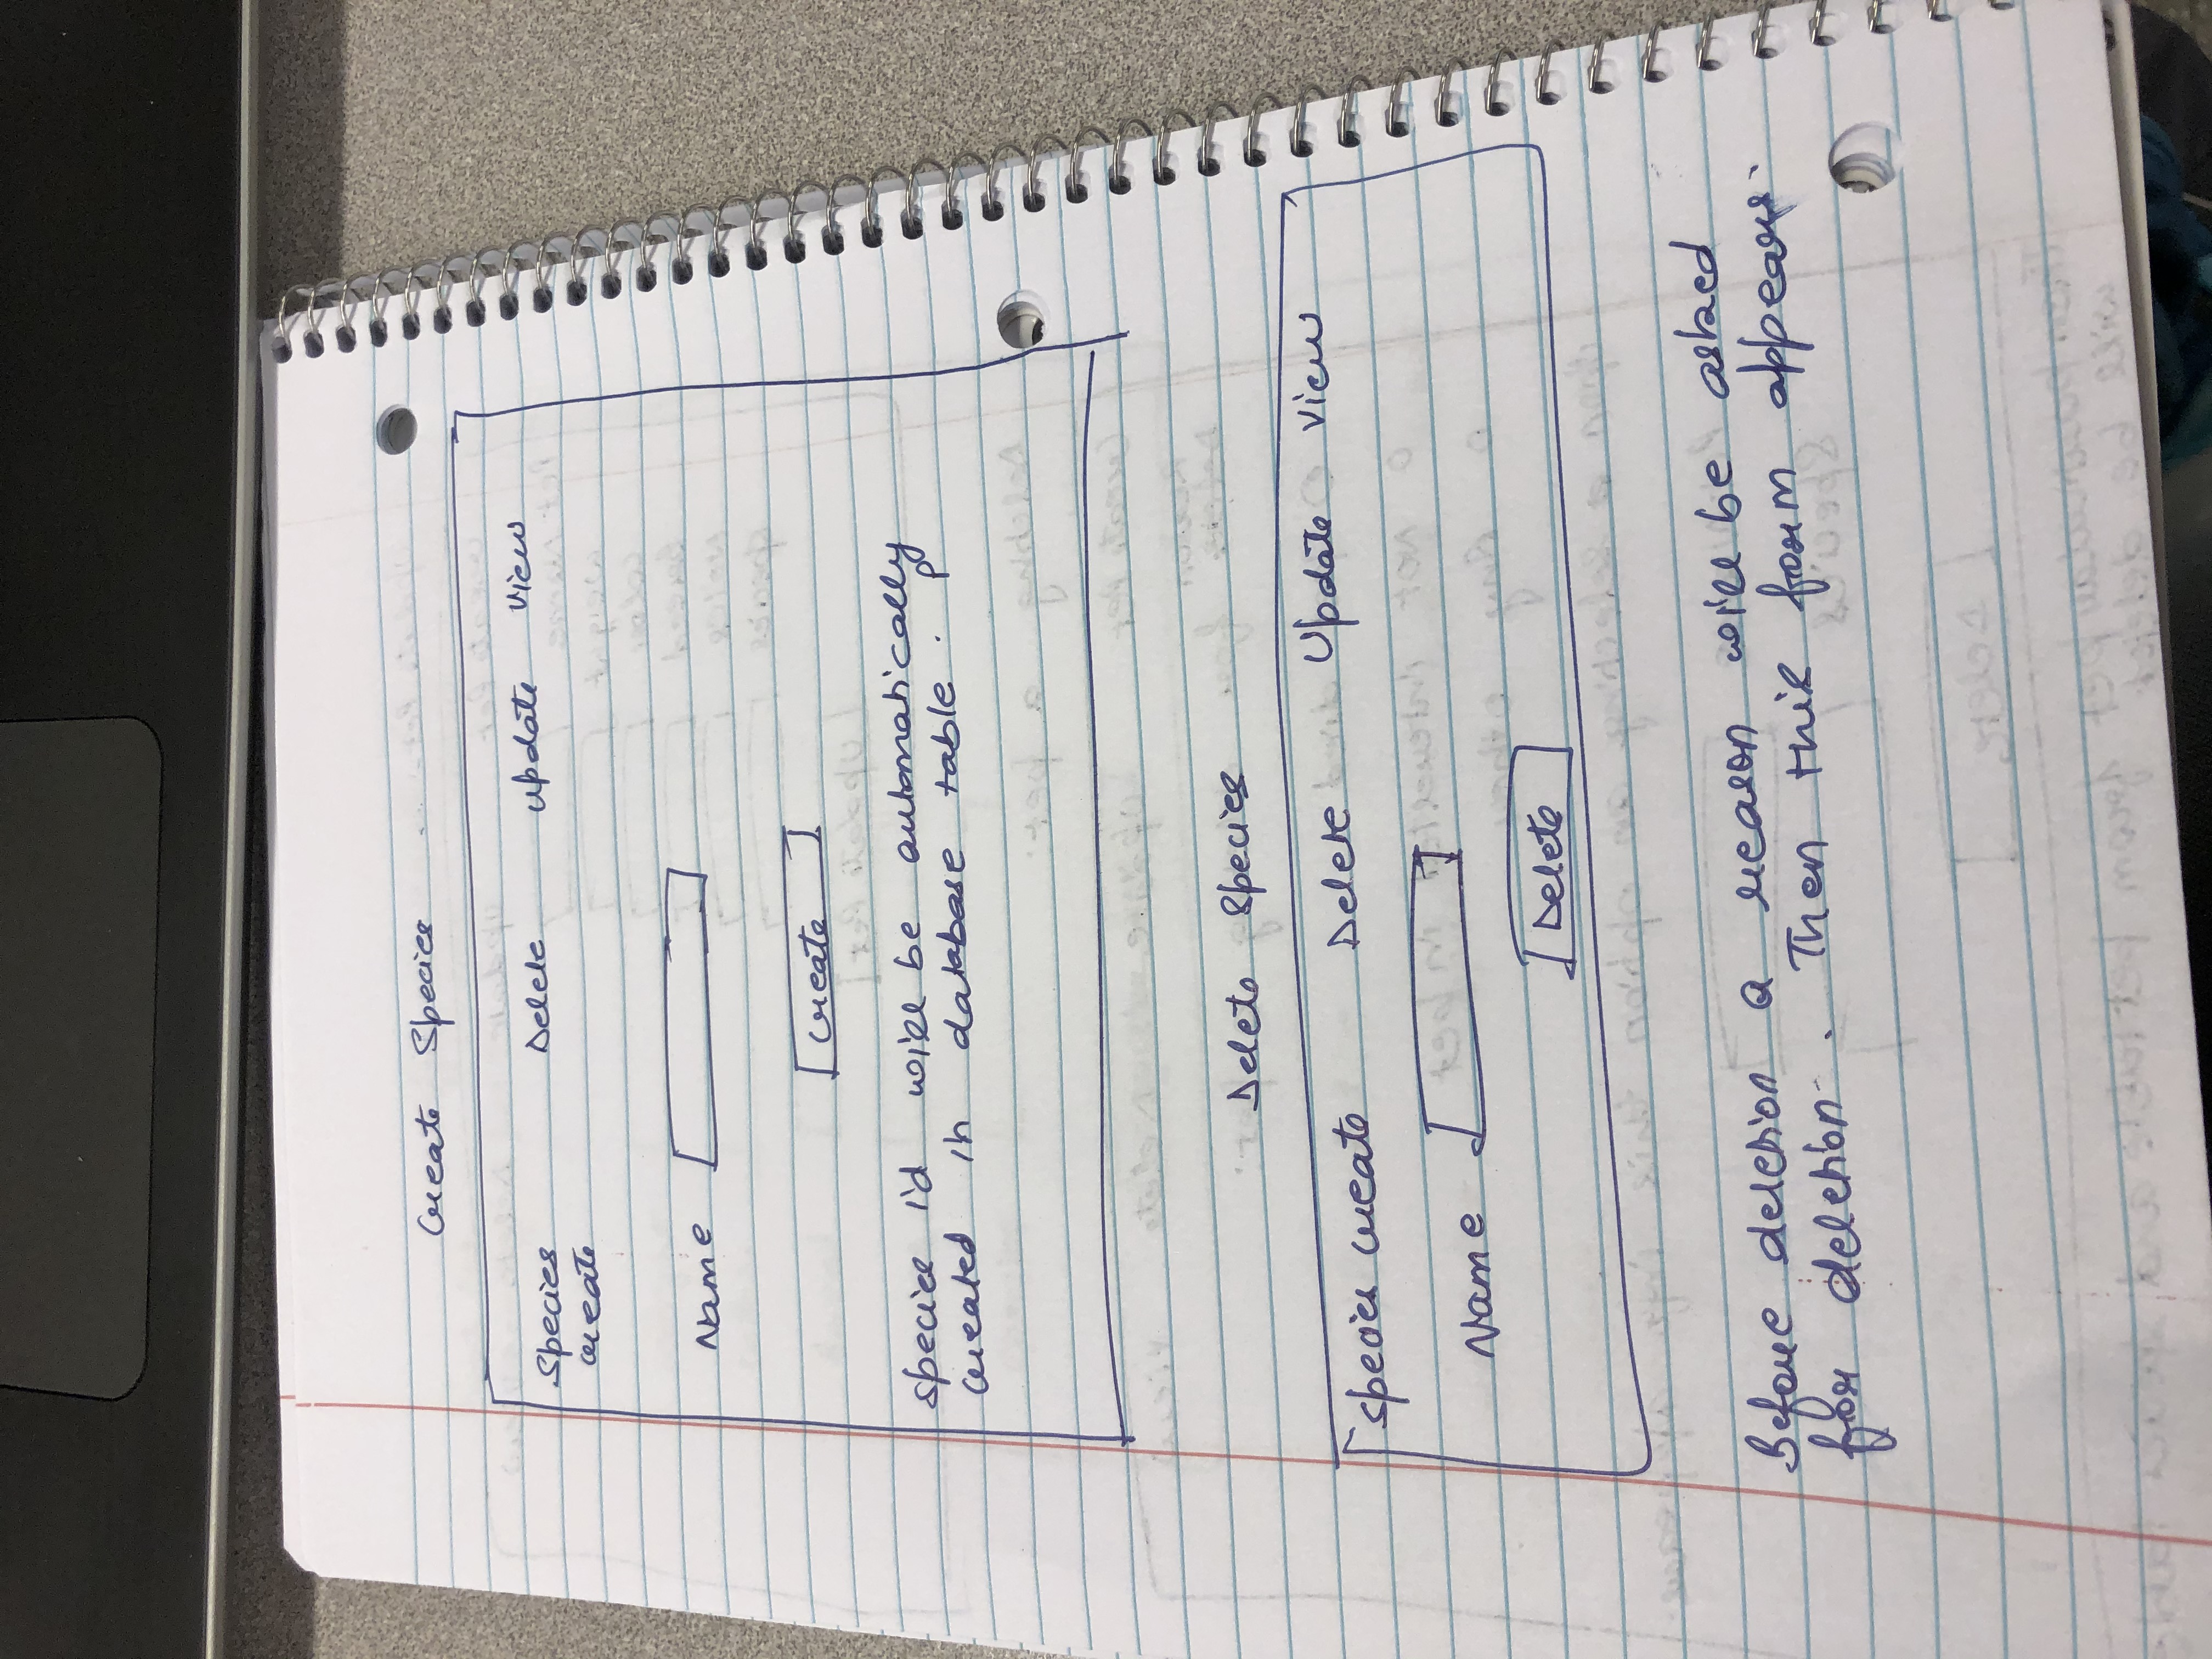 Create Species
Species Delete Update View
create
Name
Create
Species I'd will be automatically
created in database table . P
Delete Species
Species create Delete Update View
Name
Delete
Before deletion a reason will be asked
for deletion . Then this form appears.